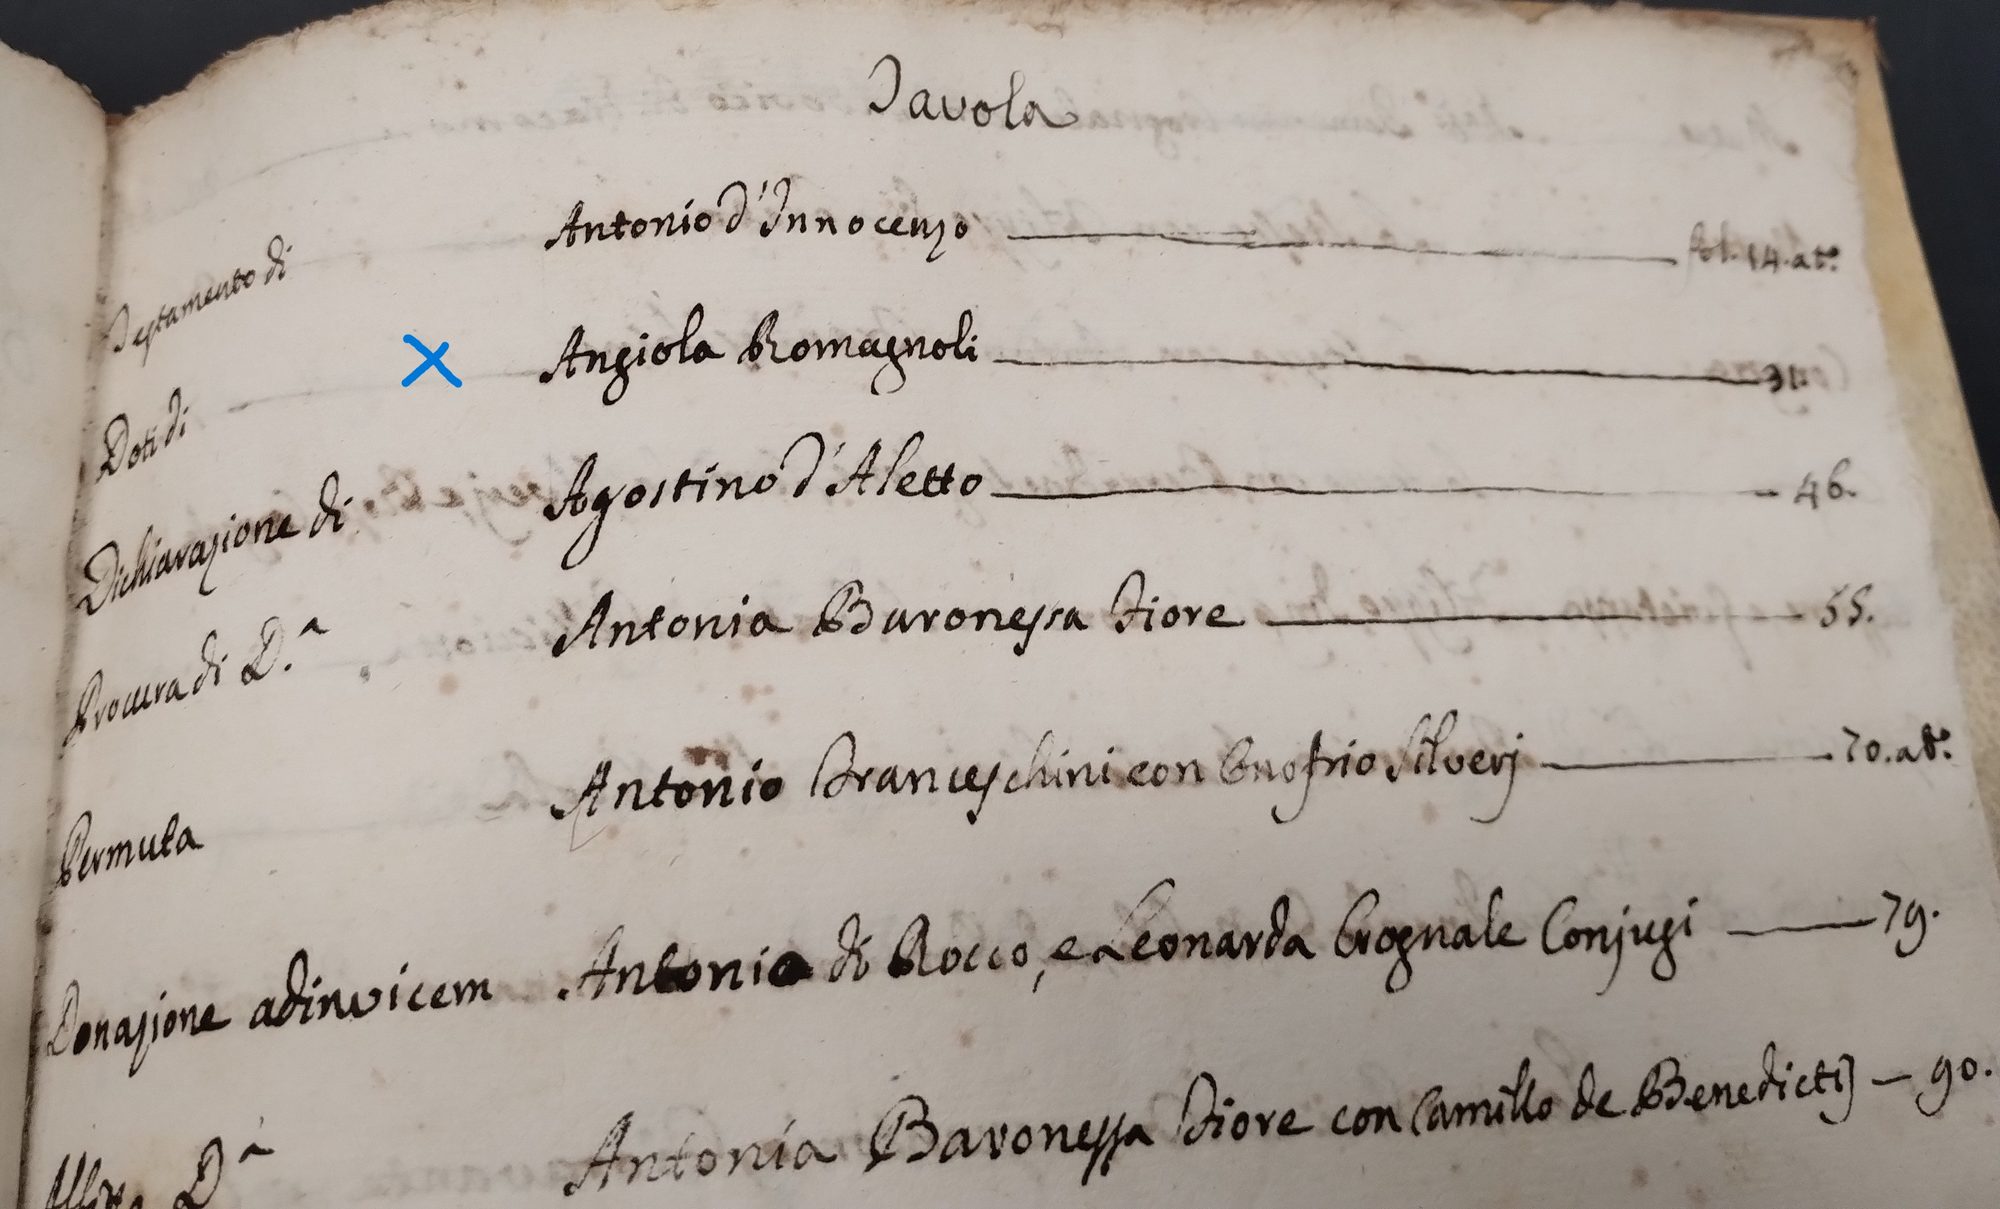 Tavola
Testamento di Antonio d'Innocenzo fol. 14. at.º
Doti di Angiola Romagnoli 31.
Dichiarazione di Agostino d'Aletto 46.
Procura di D.ª Antonia Baronessa Fiore 55.
Permuta Antonio Franceschini con Onofrio Silverj 70. at.º
Donazione adinvicem Antonio di Rocco, e Leonarda Crognale Conjugi 79.
D.ª Antonia Baronessa Fiore con Camillo de Benedictij 90.